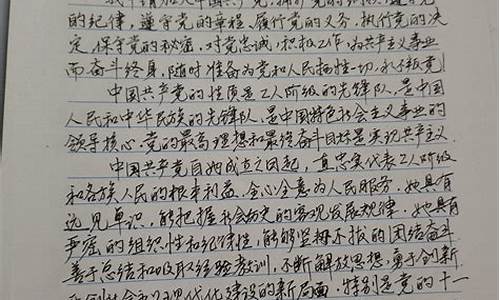 的纪律，遵守党的章程，履行党的义务，执行党的决
定，保守党的秘密，对党忠诚，积极工作，为共产主义事业
而奋斗终身，随时准备为党和人民牺牲一切，永不叛党！
中国共产党的性质是工人阶级的先锋队，是中国
人民和中华民族的先锋队，是中国特色社会主义事业的
领导核心。党的最高理想和最终奋斗目标是实现共产主义．
中国共产党自她成立之日起，直忠实代表工人阶级
和各族人民的根本利益，全心全意为人民服务．她具有
远见卓识，能把握社会历史的客观发展规律．她具有
严密的组织性和纪律性，能够坚持不拔的团结奋斗
善于总结和吸取经验教训，不断解放思想，勇于创新，
现代化建设的新局面．特别是党的十一